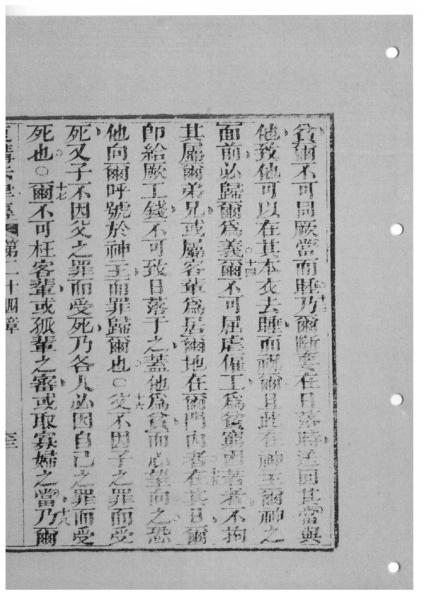 貧爾不可同厥當而睡乃爾斷要在日落時送回其當與
他致他可以在其本衣去睡而祝爾且此在神主爾神之
面前必歸爾為義十四爾不可屈虐僱工為貧窮者不拘
其屬爾弟兄或屬客輩為居爾地在爾門內者在其日爾
即給厥工錢不可致日落于之蓋他為貧而心望向之恐
他向爾呼號於神主而罪歸爾也○十六父不因子之罪而受
死又子不因父之罪而受死乃各人必因自己之罪而受
死也○十七爾不可枉客輩或孤輩之審或取寡婦之當十八乃爾
第二十四章